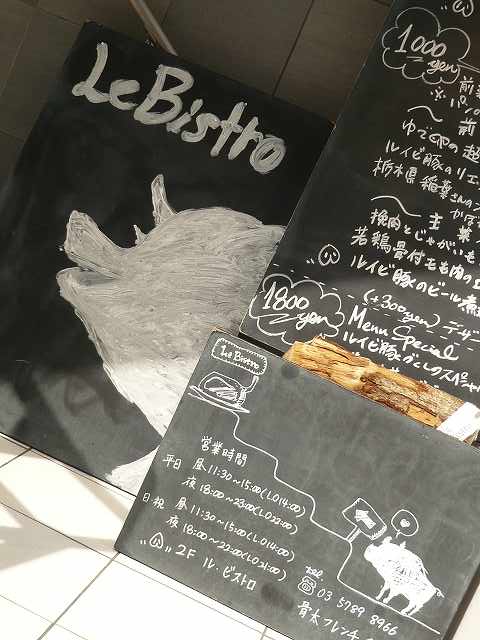 Le Bistro
1000
yen
前菜
※パン
〜 前
ゆで卵の
ルイビ豚のリエ
栃木県 稲葉さんの
かぼ
〜 主菜
挽肉とじゃがいも
若鶏骨付もも肉の
ルイビ豚のビール煮
(+300yen) デザ
1800
yen
Menu Special
ルイビ豚
Le Bistro
営業時間
平日 昼 11:30〜15:00(LO14:00)
夜 18:00〜23:00(LO22:00)
日祝 昼 11:30〜15:00(LO14:00)
夜 18:00〜22:00(LO21:00)
2F ル・ビストロ
tel.
03 5789 8966
骨太フレンチ